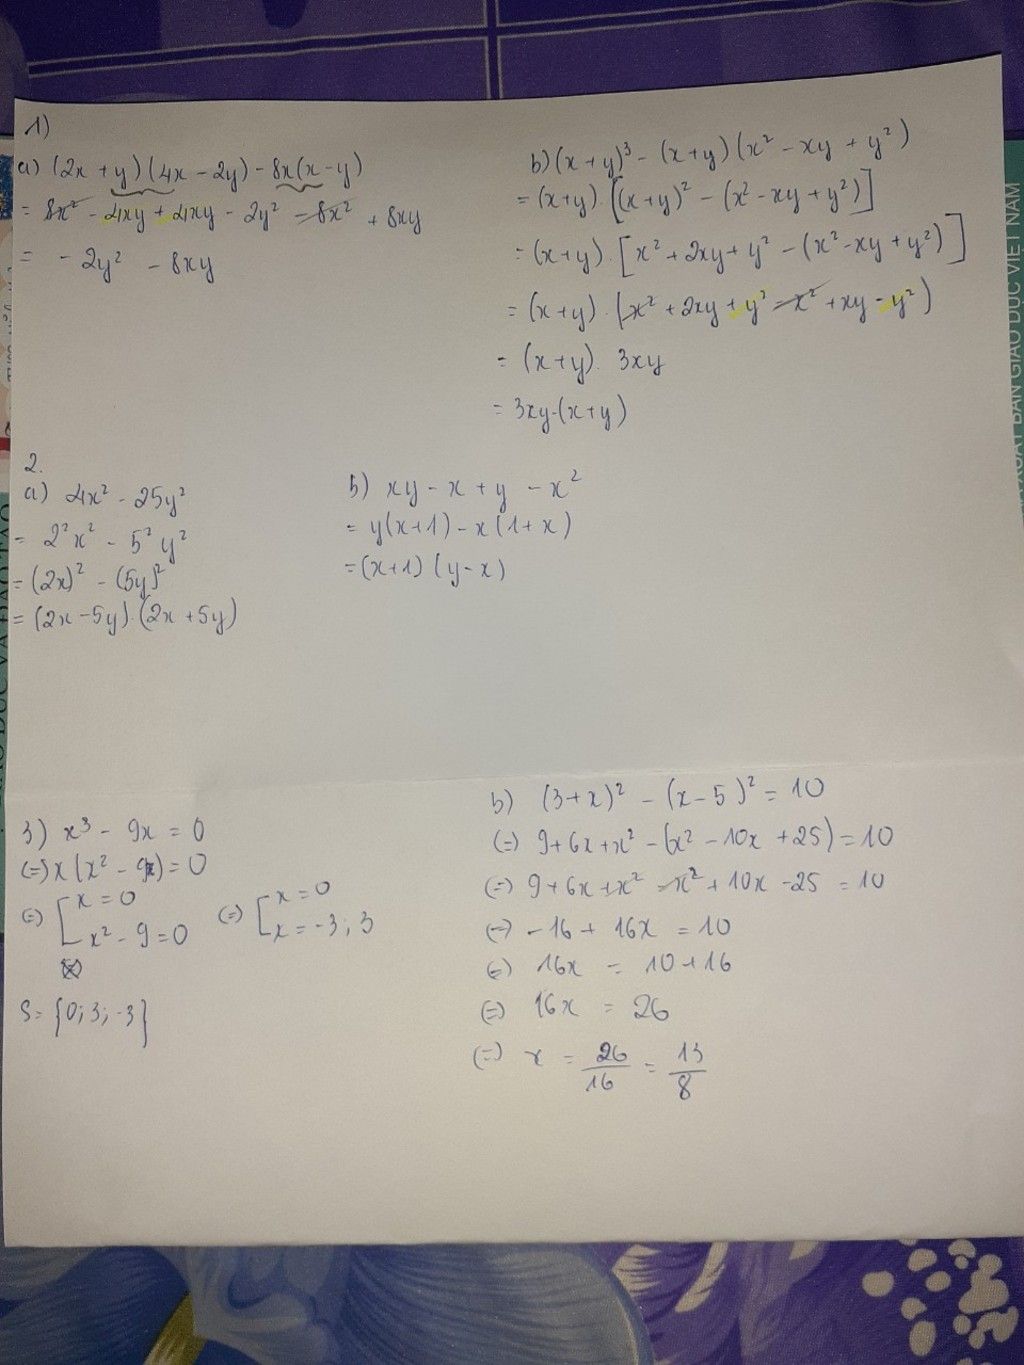 1)
a) (2x + y)(4x - 2y) - 8x(x - y)
= 8x² - 4xy + 4xy - 2y² - 8x² + 8xy
= - 2y² - 8xy
b) (x + y)³ - (x + y)(x² - xy + y²)
= (x+y) [(x+y)² - (x² - xy + y²)]
= (x+y) . [x² + 2xy + y² - (x² - xy + y²)]
= (x+y) . (x² + 2xy + y² - x² + xy - y²)
= (x+y) . 3xy
= 3xy.(x+y)
2.
a) 4x² - 25y²
= 2²x² - 5²y²
= (2x)² - (5y)²
= (2x - 5y).(2x + 5y)
b) xy - x + y - x²
= y(x+1) - x(1+x)
= (x+1) (y - x)
3) x³ - 9x = 0
(=) x(x² - 9) = 0
(=) [x = 0
x² - 9 = 0
(=) [x = 0
x = -3; 3
S = {0; 3; -3}
b) (3+x)² - (x - 5)² = 10
(=) 9 + 6x + x² - (x² - 10x + 25) = 10
(=) 9 + 6x + x² - x² + 10x - 25 = 10
(=) - 16 + 16x = 10
(=) 16x = 10 + 16
(=) 16x = 26
(=) x = 26/16 = 13/8
XUẤT BẢN GIÁO DỤC VIỆT NAM
DỤC VÀ ĐÀO TẠO